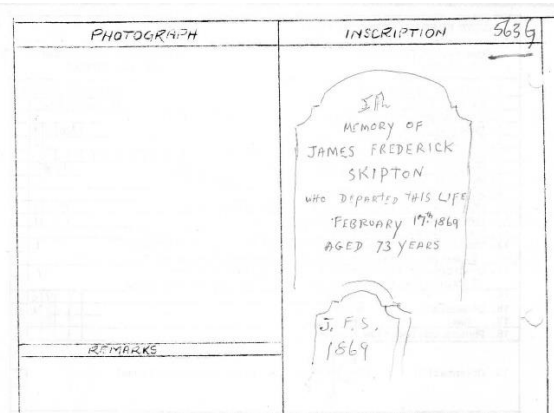 PHOTOGRAPH
INSCRIPTION 563G
In
MEMORY OF
JAMES FREDERICK
SKIPTON
WHO DEPARTED THIS LIFE
FEBRUARY 17th 1869
AGED 73 YEARS
J. F. S.
1869
REMARKS